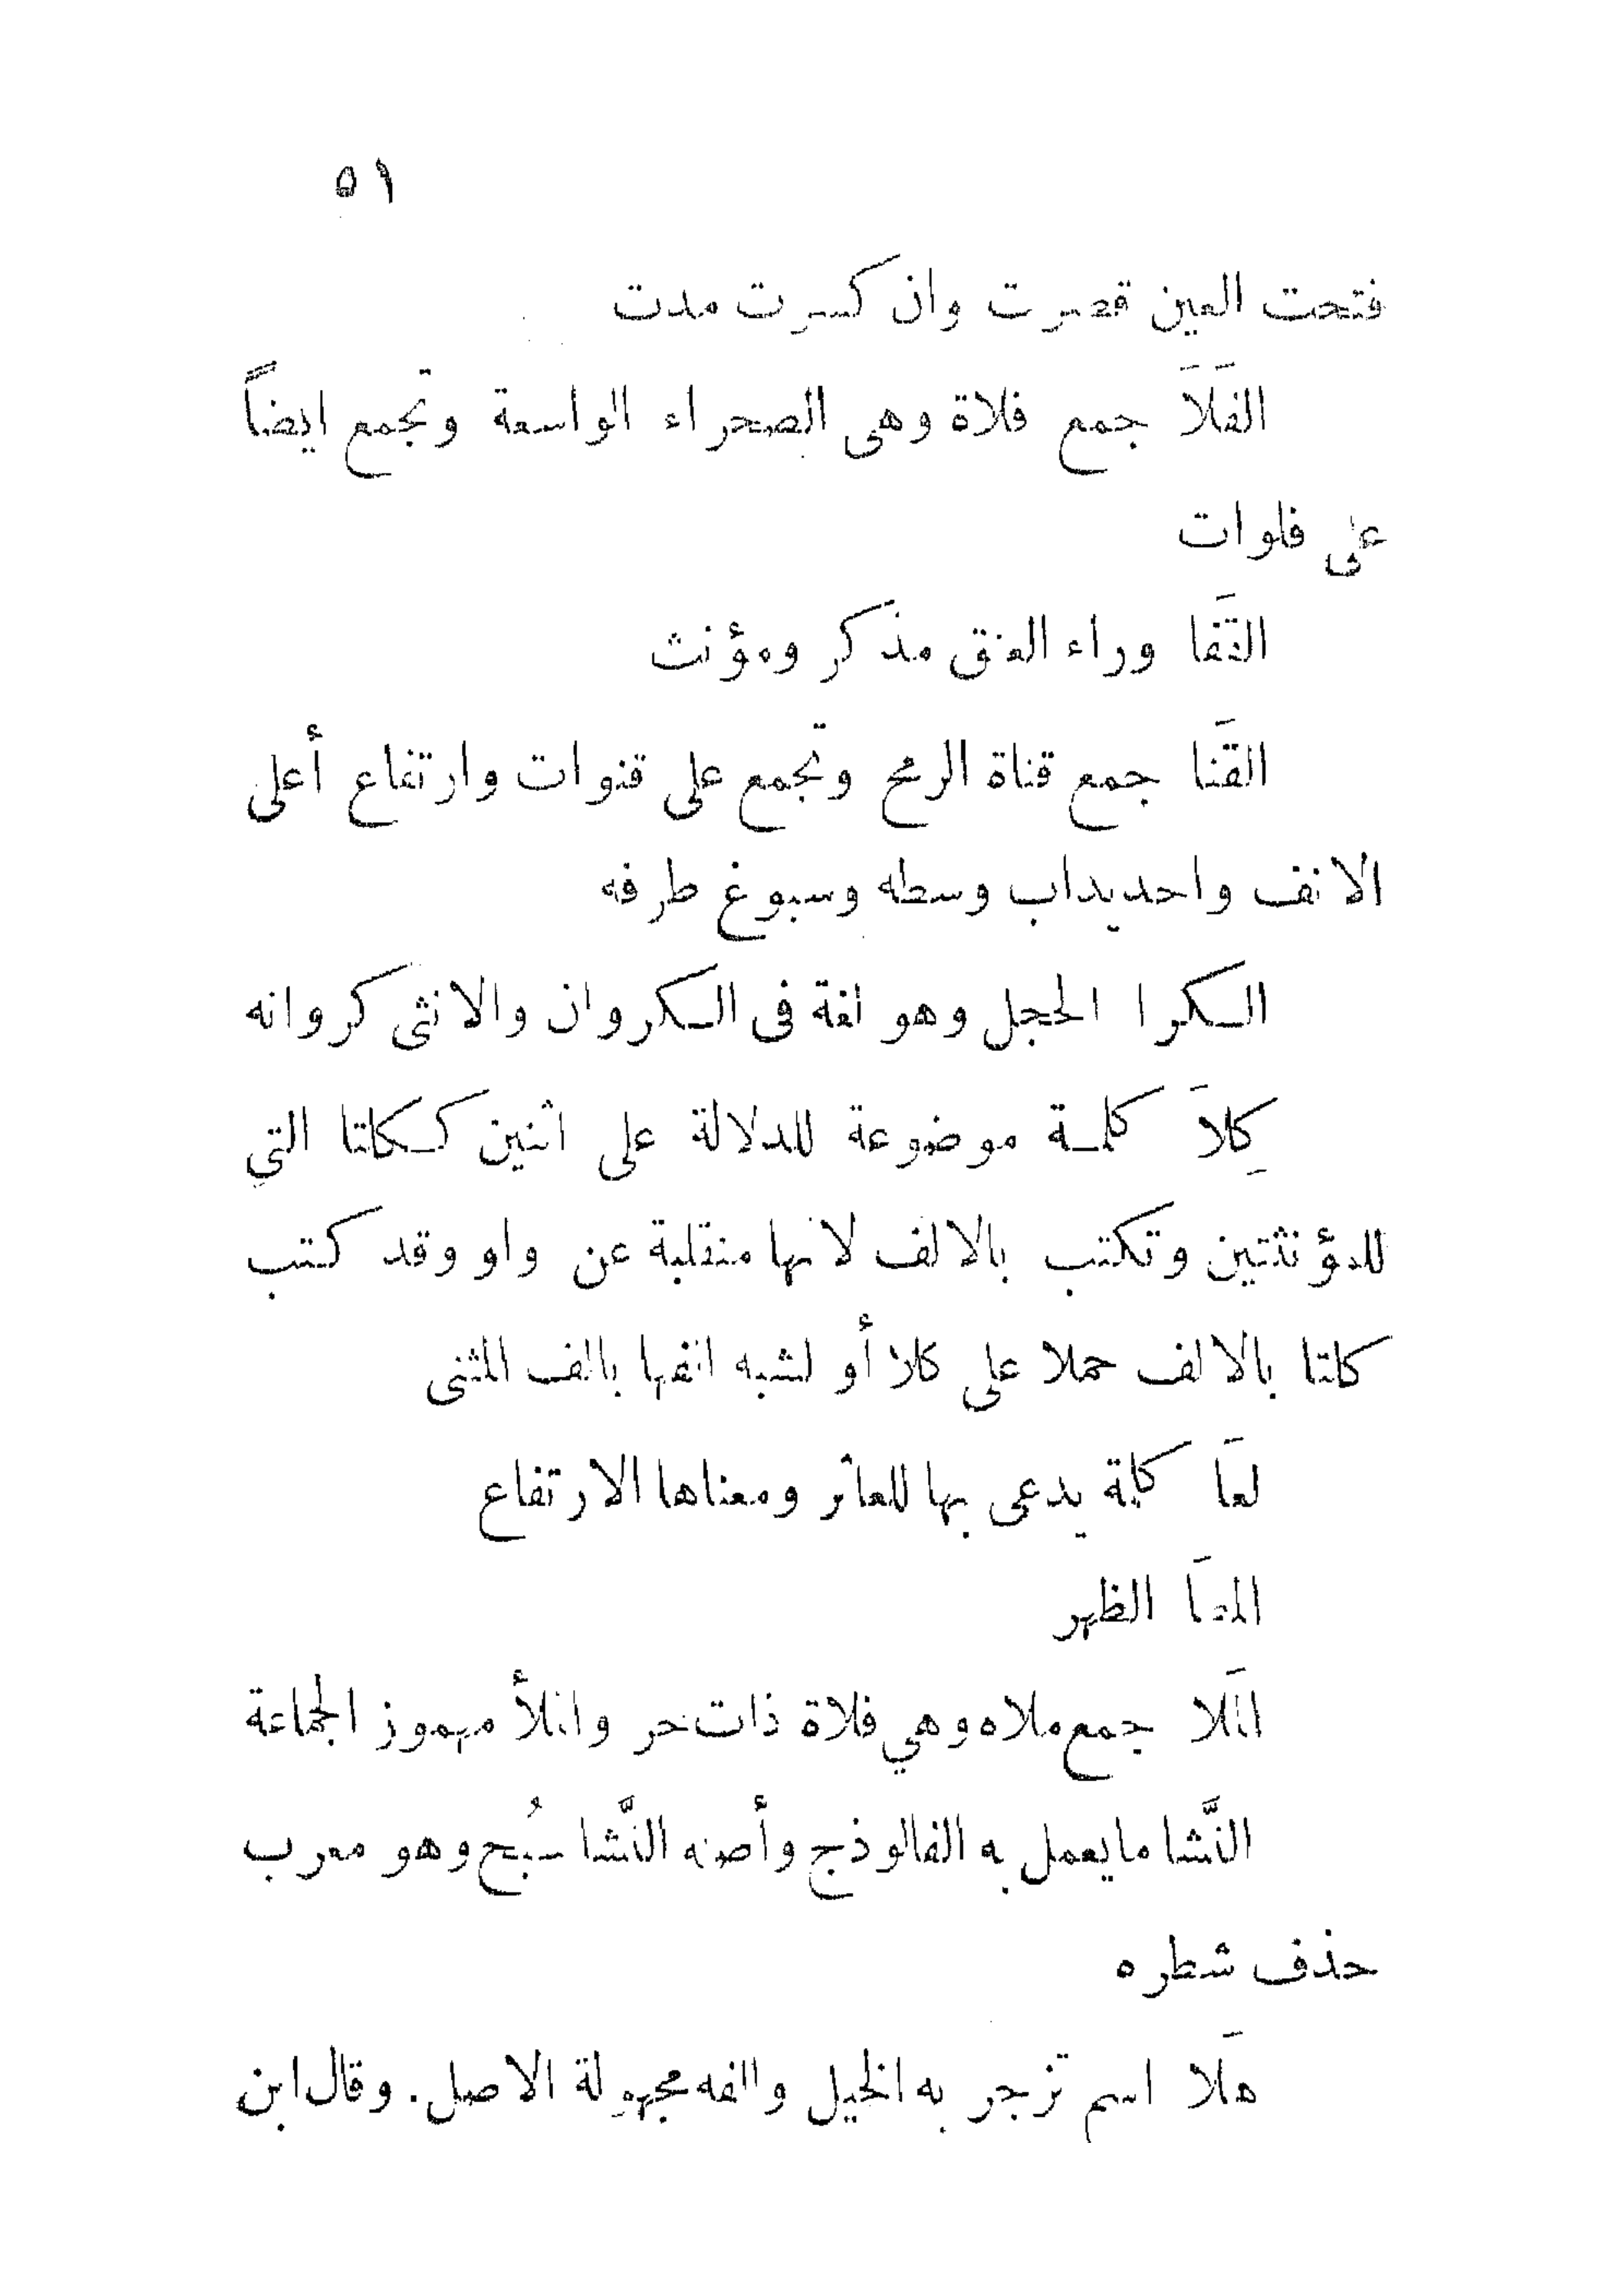 ٥١
فتحت العين قصرت وان كسرت مدت
الفَلاَ جمع فلاة وهى الصحراء الواسعة وتجمع ايضاً
على فلوات
القَفا وراء العنق مذكر ومؤنث
القَنا جمع قناة الرمح وتجمع على قنوات وارتفاع أعلى
الانف واحديداب وسطه وسبوغ طرفه
الكرا الحجل وهو لغة فى الكروان والانثى كروانه
كِلاَ كلمة موضوعة للدلالة على اثنين ككلتا التي
للمؤنثتين وتكتب بالالف لانها منقلبة عن واو وقد كتب
كلتا بالالف حملا على كلا أو لشبه الفها بالف المثنى
لعَا كلمة يدعى بها للعاثر ومعناها الارتفاع
المطَا الظهر
المَلا جمع ملاه وهي فلاة ذات حر والملأ مهموز الجماعة
النَّشا ما يعمل به الفالوذج وأصله النَّشا سُبج وهو معرب
حذف شطره
هَلا اسم تزجر به الخيل والفه مجهولة الاصل. وقال ابن